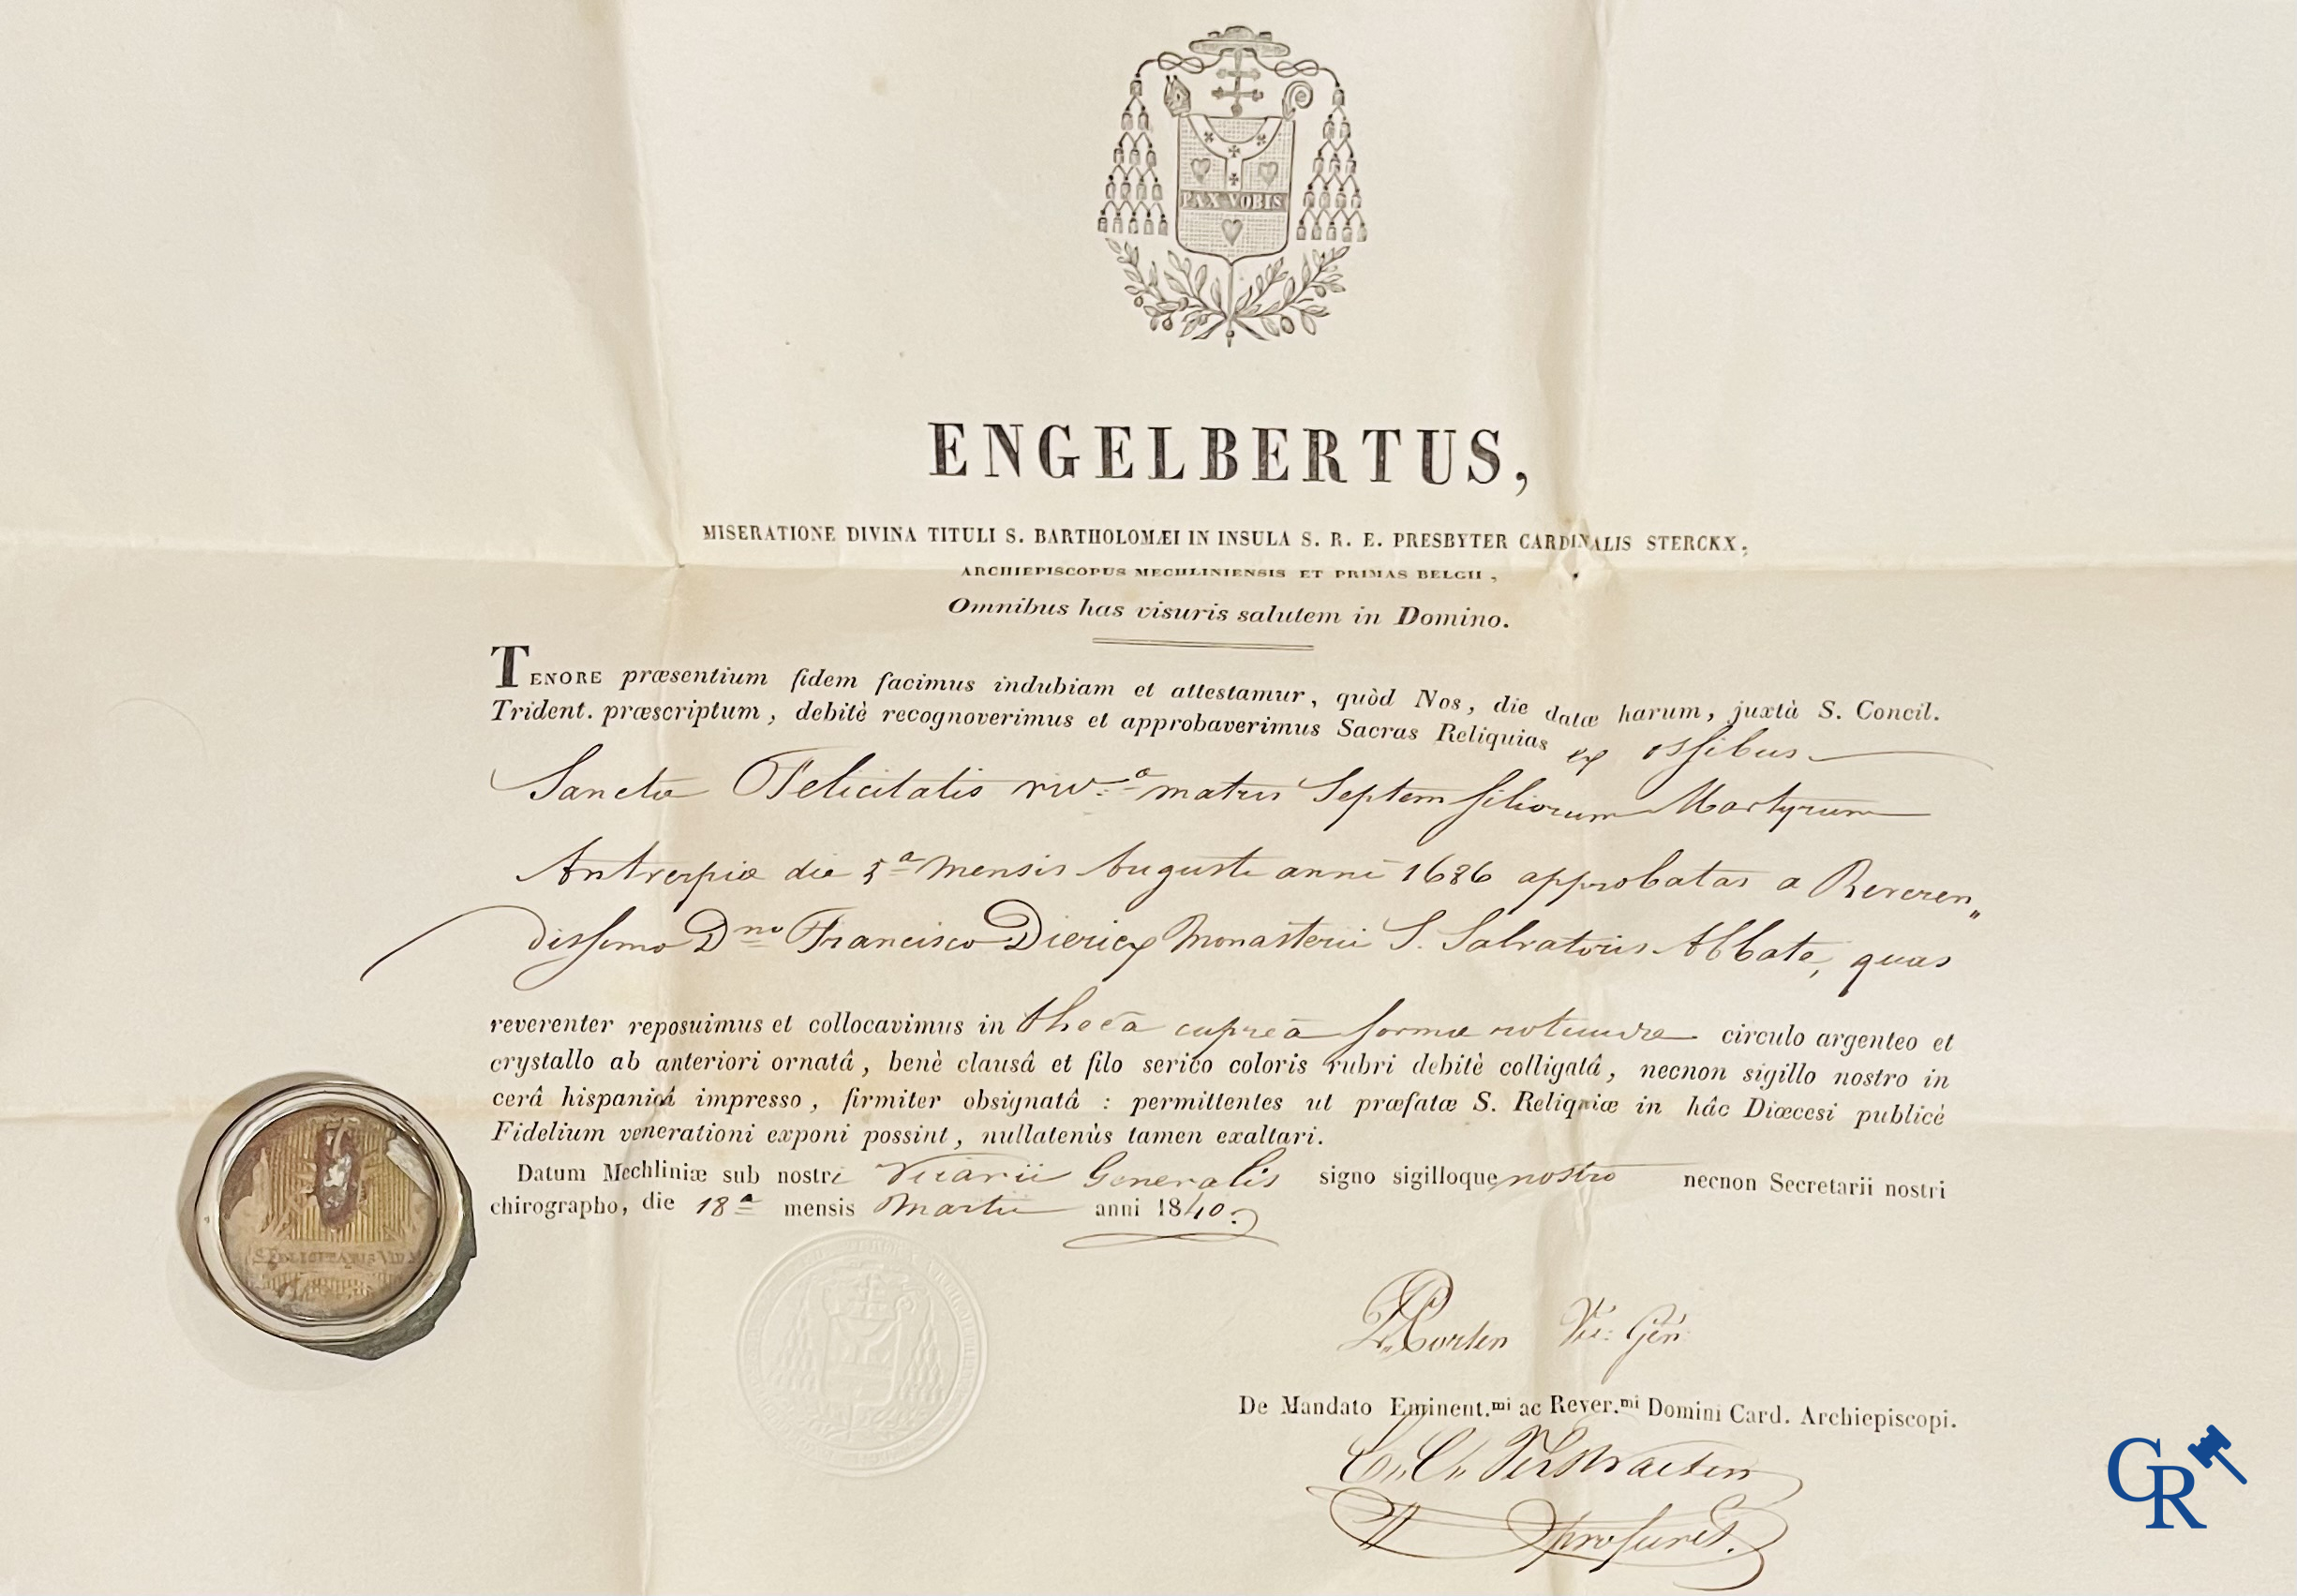 PAX VOBIS
ENGELBERTUS,
MISERATIONE DIVINA TITULI S. BARTHOLOMÆI IN INSULA S. R. E. PRESBYTER CARDINALIS STERCKX,
ARCHIEPISCOPUS MECHLINIENSIS ET PRIMAS BELGII,
Omnibus has visuris salutem in Domino.
TENORE præsentium fidem facimus indubiam et attestamur, quòd Nos, die datæ harum, juxtà S. Concil.
Trident. præscriptum, debitè recognoverimus et approbaverimus Sacras Reliquias ex ossibus
Sanctæ Felicitatis vid.æ matris Septem filiorum Martyrum
Antverpiæ die 5ª mensis Augusti anni 1686 approbatas a Reveren„
dissimo Dno Francisco Diericx Monasterii S. Salvatoris Abbate, quas
reverenter reposuimus et collocavimus in thecâ cupreâ formæ rotundæ circulo argenteo et
crystallo ab anteriori ornatâ, benè clausâ et filo serico coloris rubri debitè colligatâ, necnon sigillo nostro in
cerâ hispanicâ impresso, firmiter obsignatâ : permittentes ut præfatæ S. Reliquiæ in hâc Diœcesi publicè
Fidelium venerationi exponi possint, nullatenùs tamen exaltari.
Datum Mechliniæ sub nostri Vicarii Generalis signo sigilloque nostro necnon Secretarii nostri
chirographo, die 18ª mensis Martii anni 1840.
S. FELICITATIS VID. M
Corten Vic: Gen
De Mandato Eminent.mi ac Rever.mi Domini Card. Archiepiscopi.
C. C. Verstraeten
pro secret.
CR